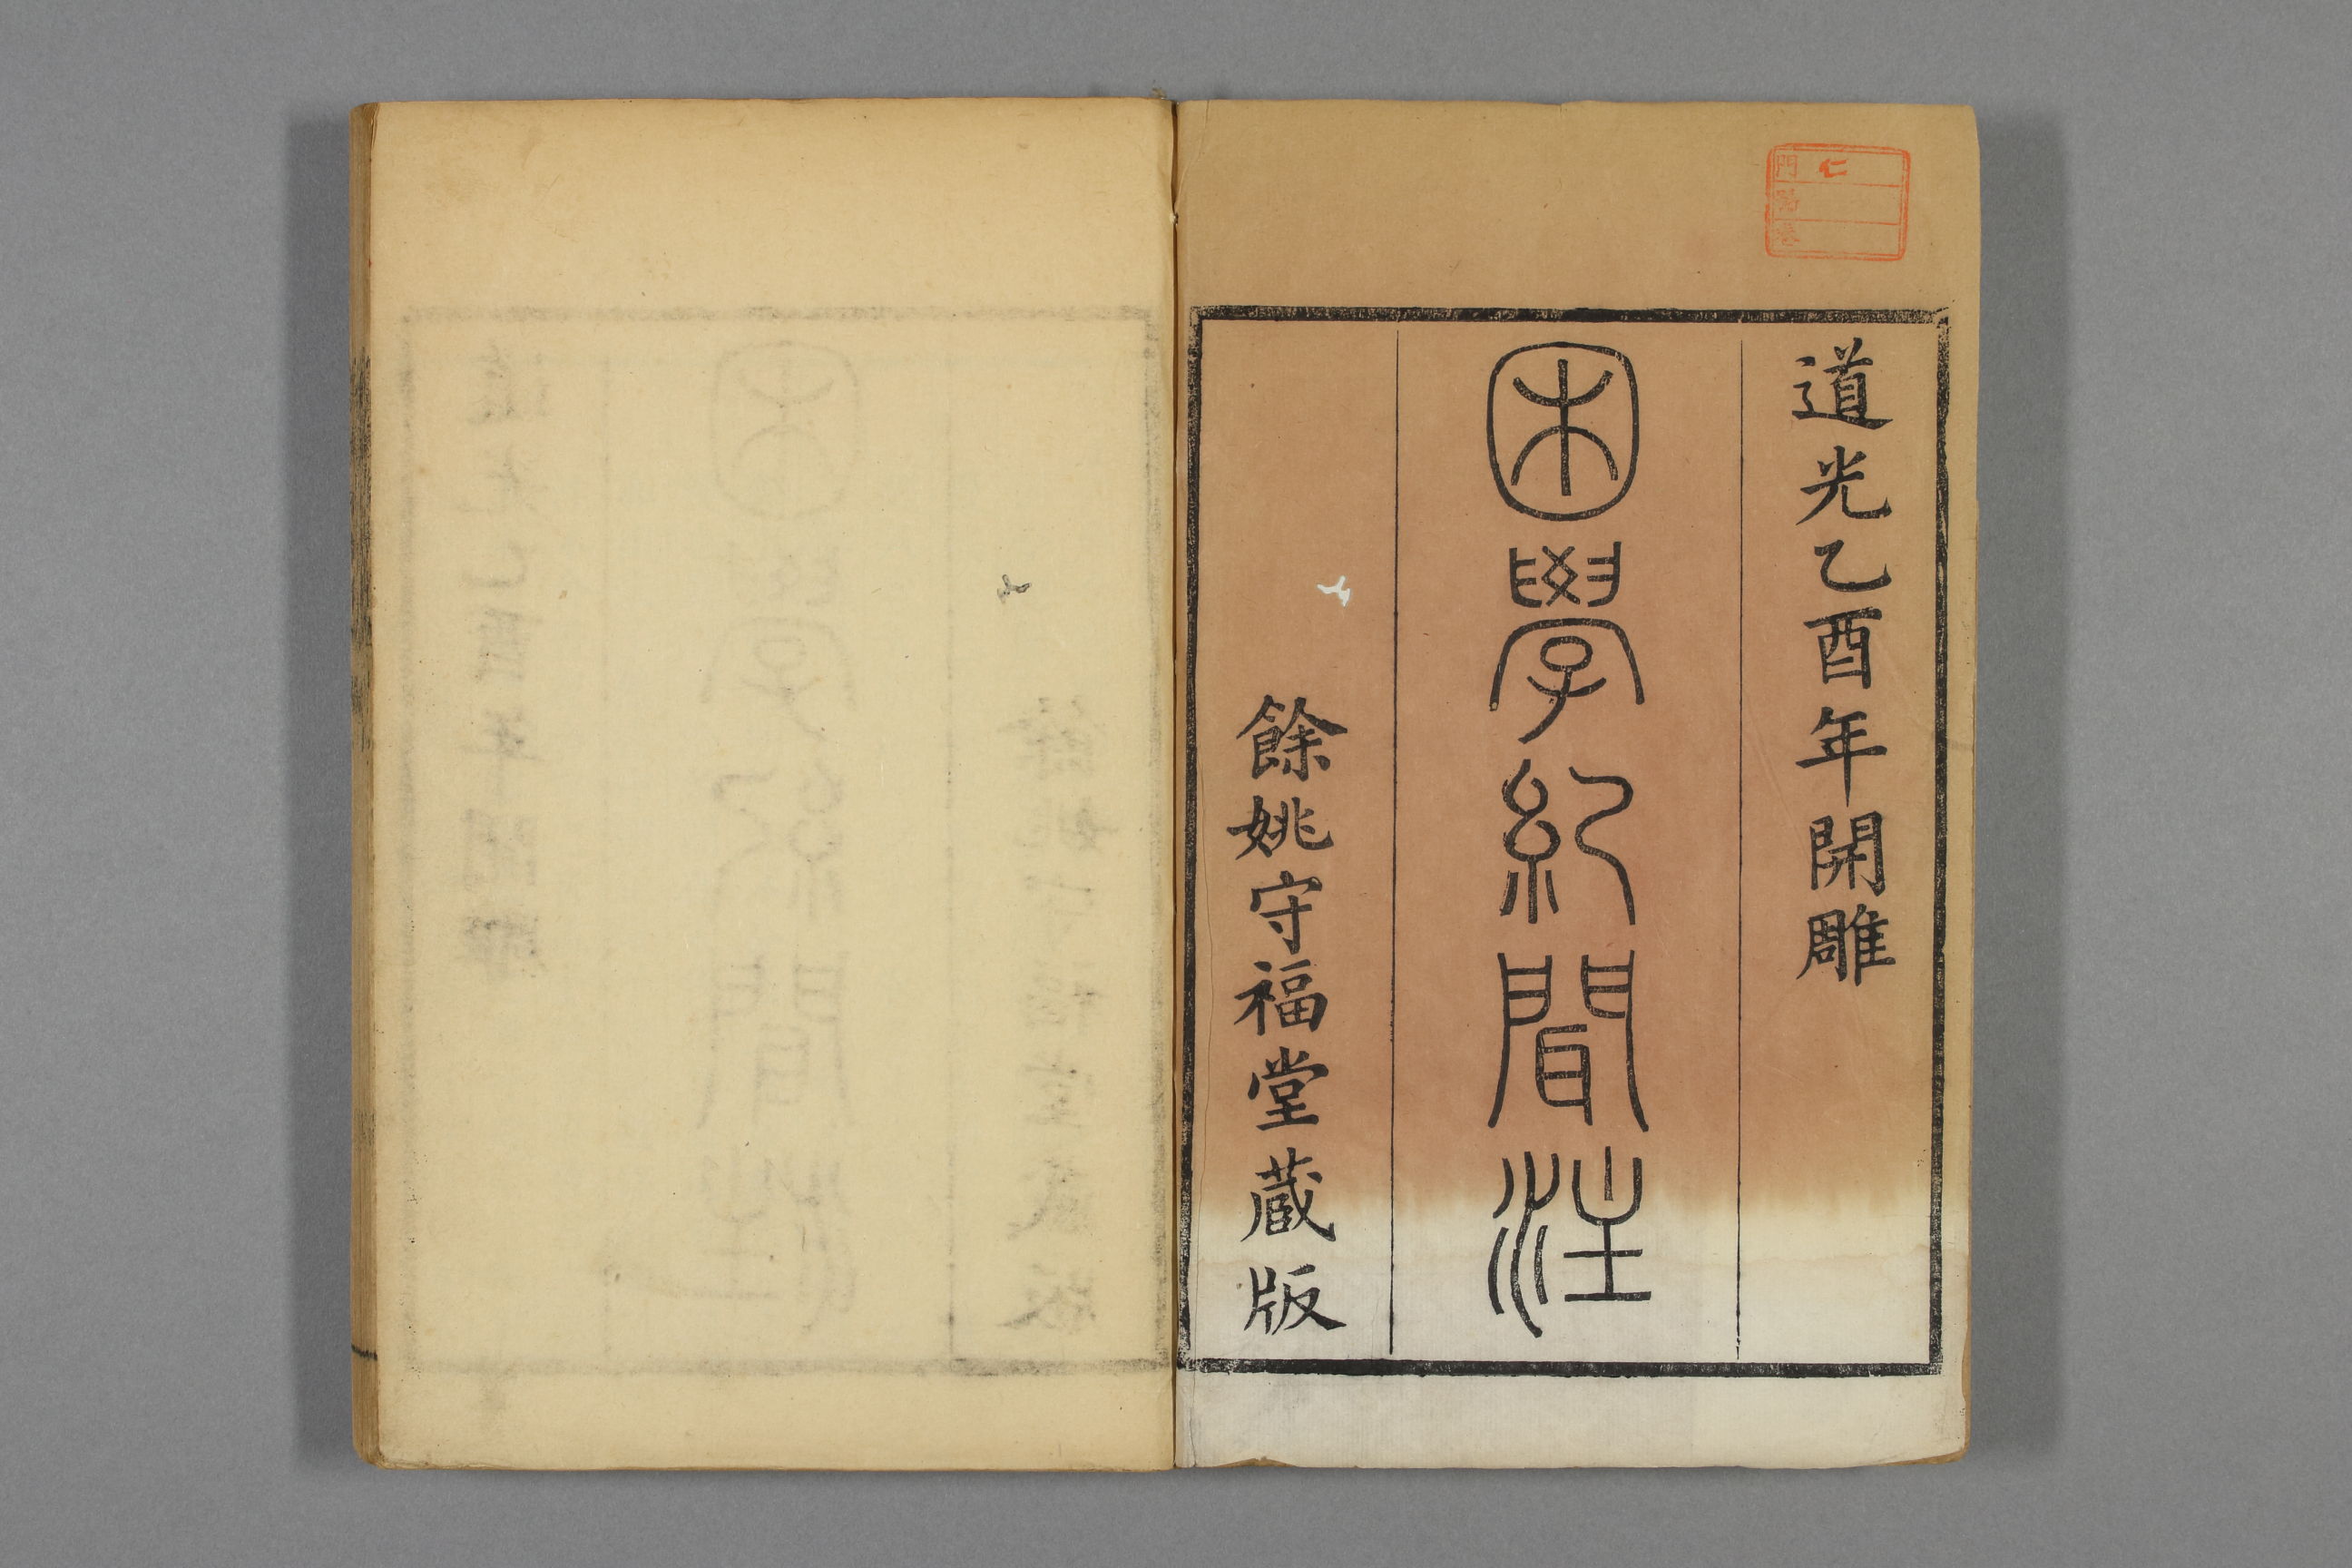 道光乙酉年開雕
困學紀聞注
餘姚守福堂蔵版
門 仁
號
卷